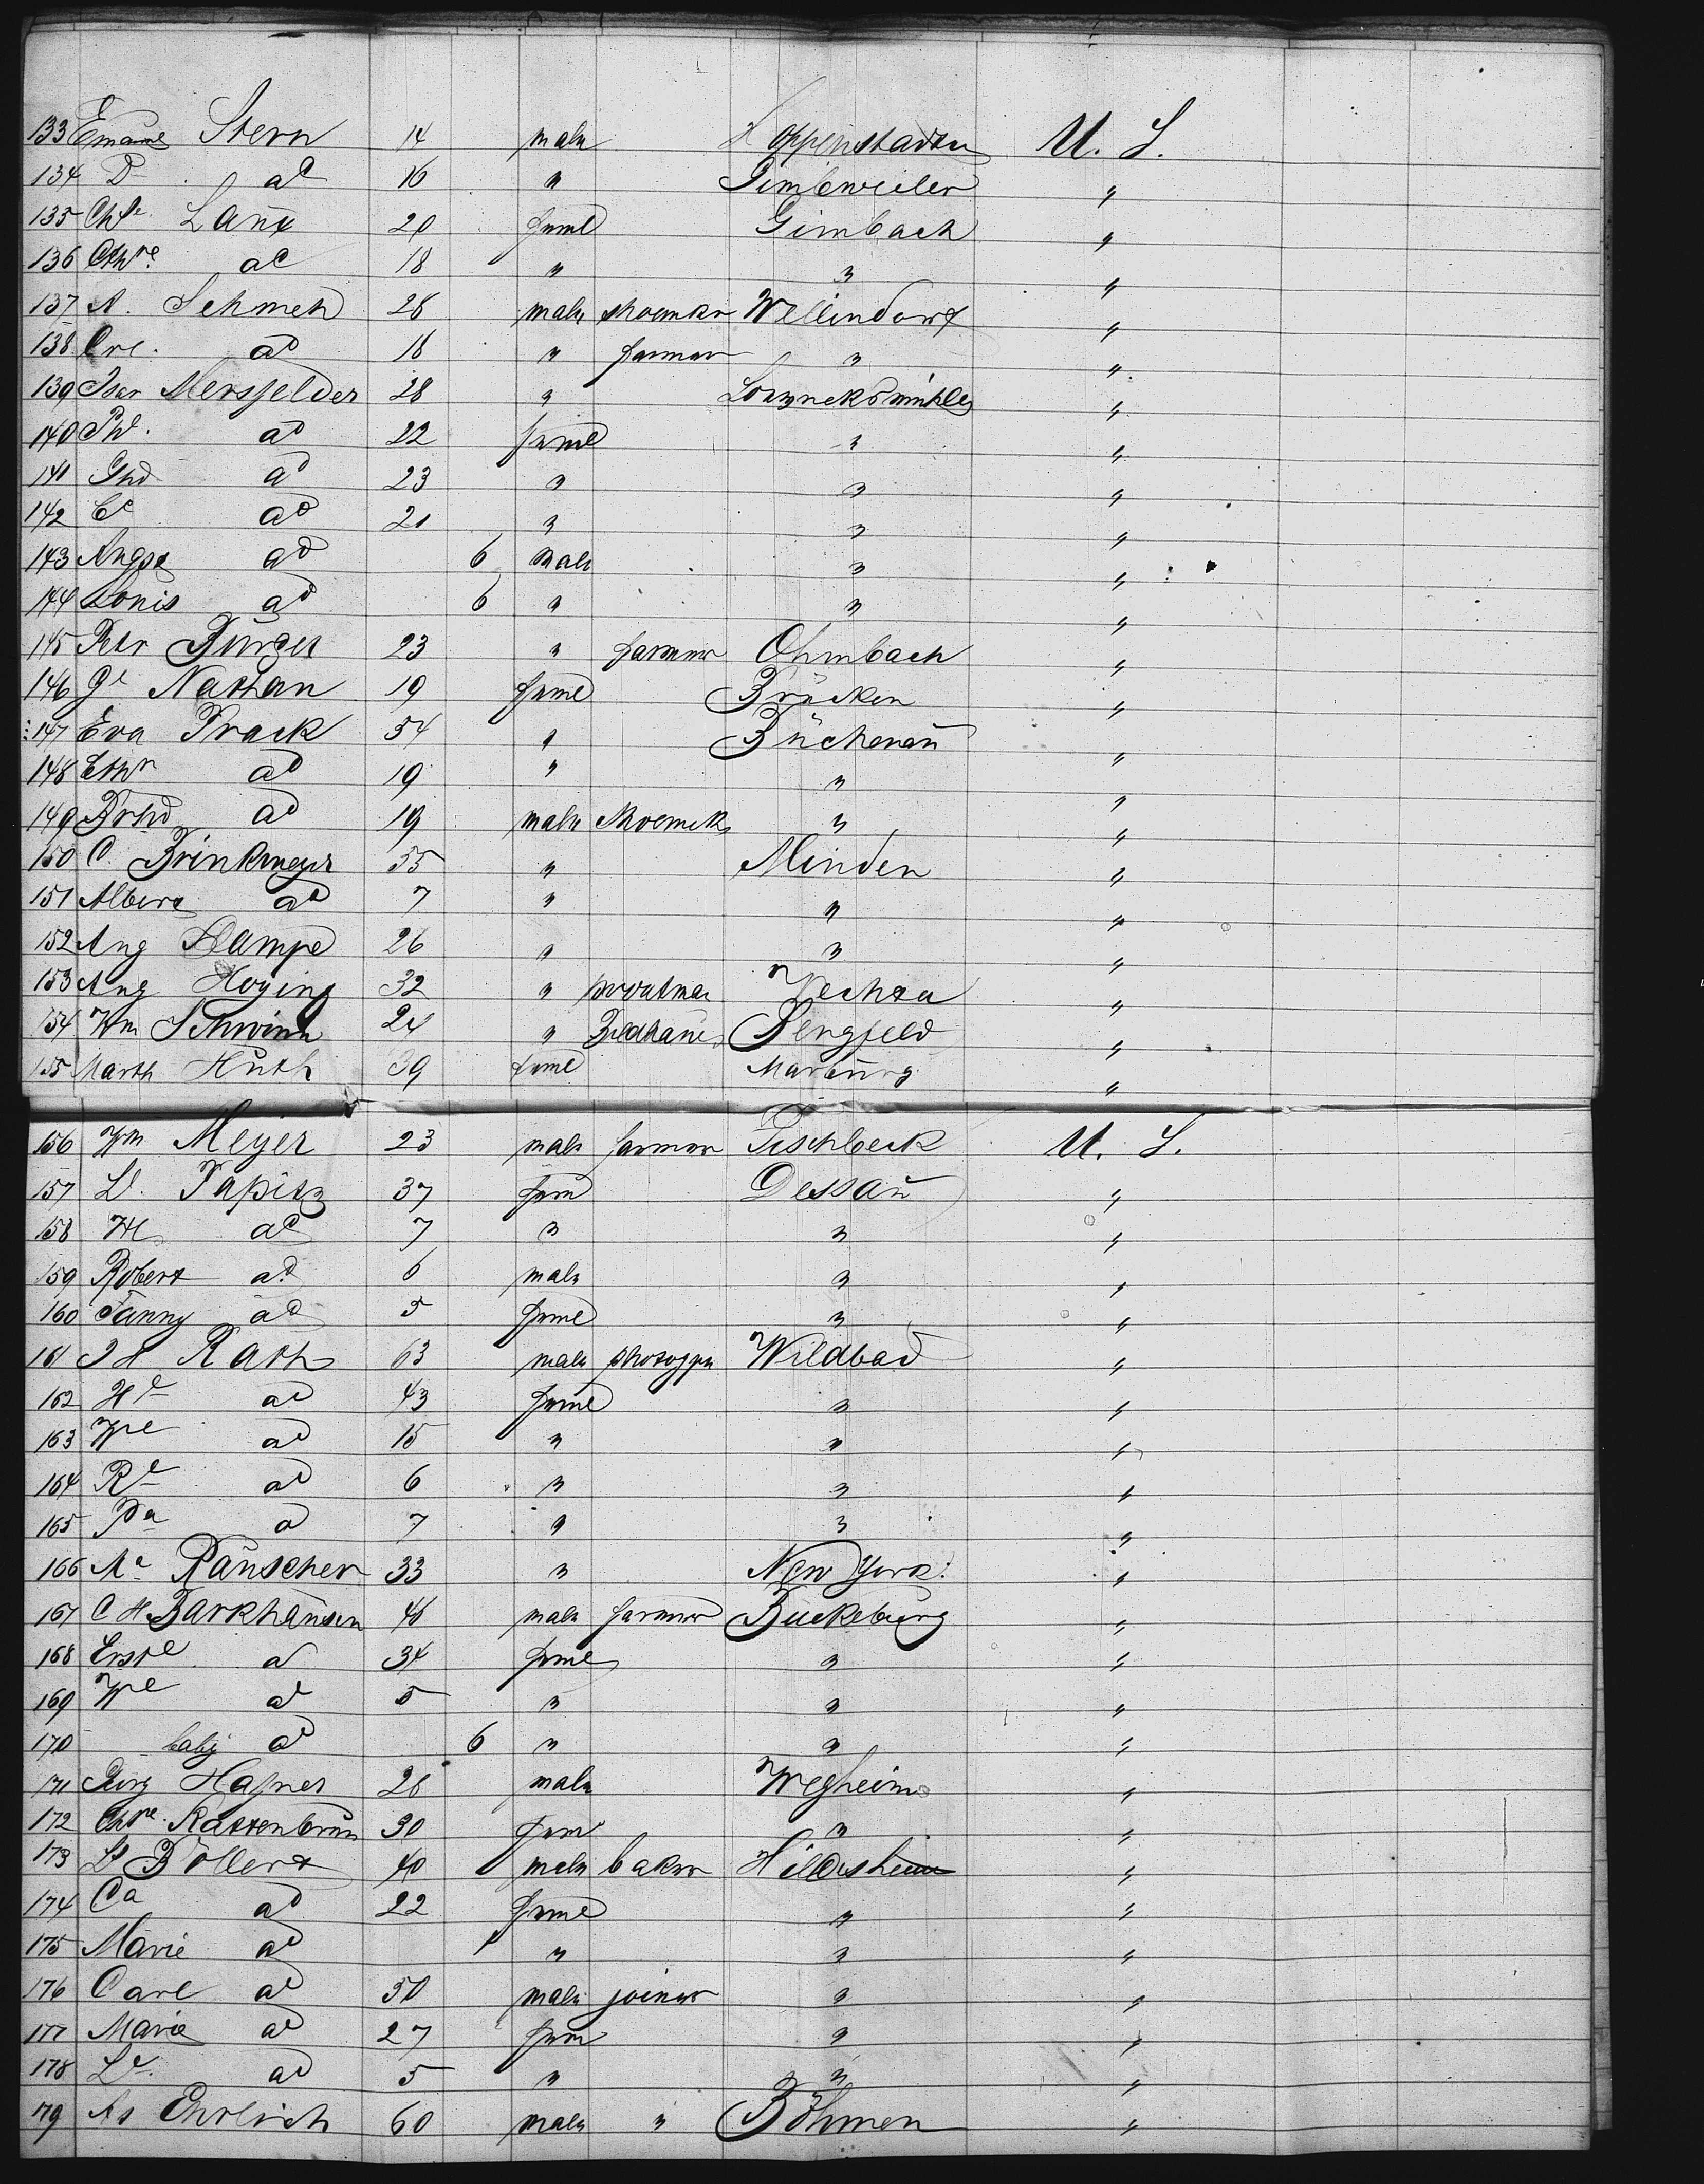 133 Eman^l Stern 14 male Hoppenstadten U. S.
134 D ad 16 " Gimbweiler "
135 Ch^e Lang 20 feml Gimbach "
136 Cth^ne ad 18 " " "
137 A. Schmeh 28 male shoemkr Wellendorf "
138 Crl. ad 18 " farmer " "
139 Isar Mersfelder 28 " "
140 Phl. ad 22 feml " "
141 Ghd ad 23 " " "
142 C^e ad 21 " " "
143 Augst ad 6 male " "
144 Louis ad 6 " " "
145 Petr Burger 23 " farmer Ohmbach "
146 G^e Nathan 19 feml Brücken "
147 Eva Track 54 " Büchenau "
148 Eth^n ad 19 " " "
149 Brhd ad 19 male shoemk " "
150 C. Brinkmeyer 55 " Minden "
151 Albert ad 7 " " "
152 Aug Hampe 26 " " "
153 Aug Hoging 32 " Vechta "
154 Wm Schwinn 24 " Bergfeld "
155 Marth Huth 39 feml Marburg "
156 Wm Meyer 23 male farmer Fischbeck U. S.
157 L. Papitz 37 fem Dessau "
158 ad 7 " " "
159 Robert ad 6 male " "
160 Fanny ad 5 feml " "
161 J H Rath 63 male photogpr Wildbad "
162 H^e ad 43 feml " "
163 W^e ad 15 " " "
164 R^e ad 6 " " "
165 P^a ad 7 " " "
166 A^a Räuscher 33 " New York "
167 C H Barkhausen 48 male farmer Buckeburg "
168 Erst^e ad 34 feml " "
169 W^e ad 5 " " "
170 baby ad 6 " " "
171 Georg Hafner 28 male Wegheim "
172 Chr^ne Rattenbrun 30 fem " "
173 L Bollert 40 male baker Hildesheim "
174 C^a ad 22 feml " "
175 Marie ad " " "
176 Carl ad 50 male joiner " "
177 Marie ad 27 fem " "
178 L^e ad 5 " " "
179 As Ehrlich 60 male " Böhmen "